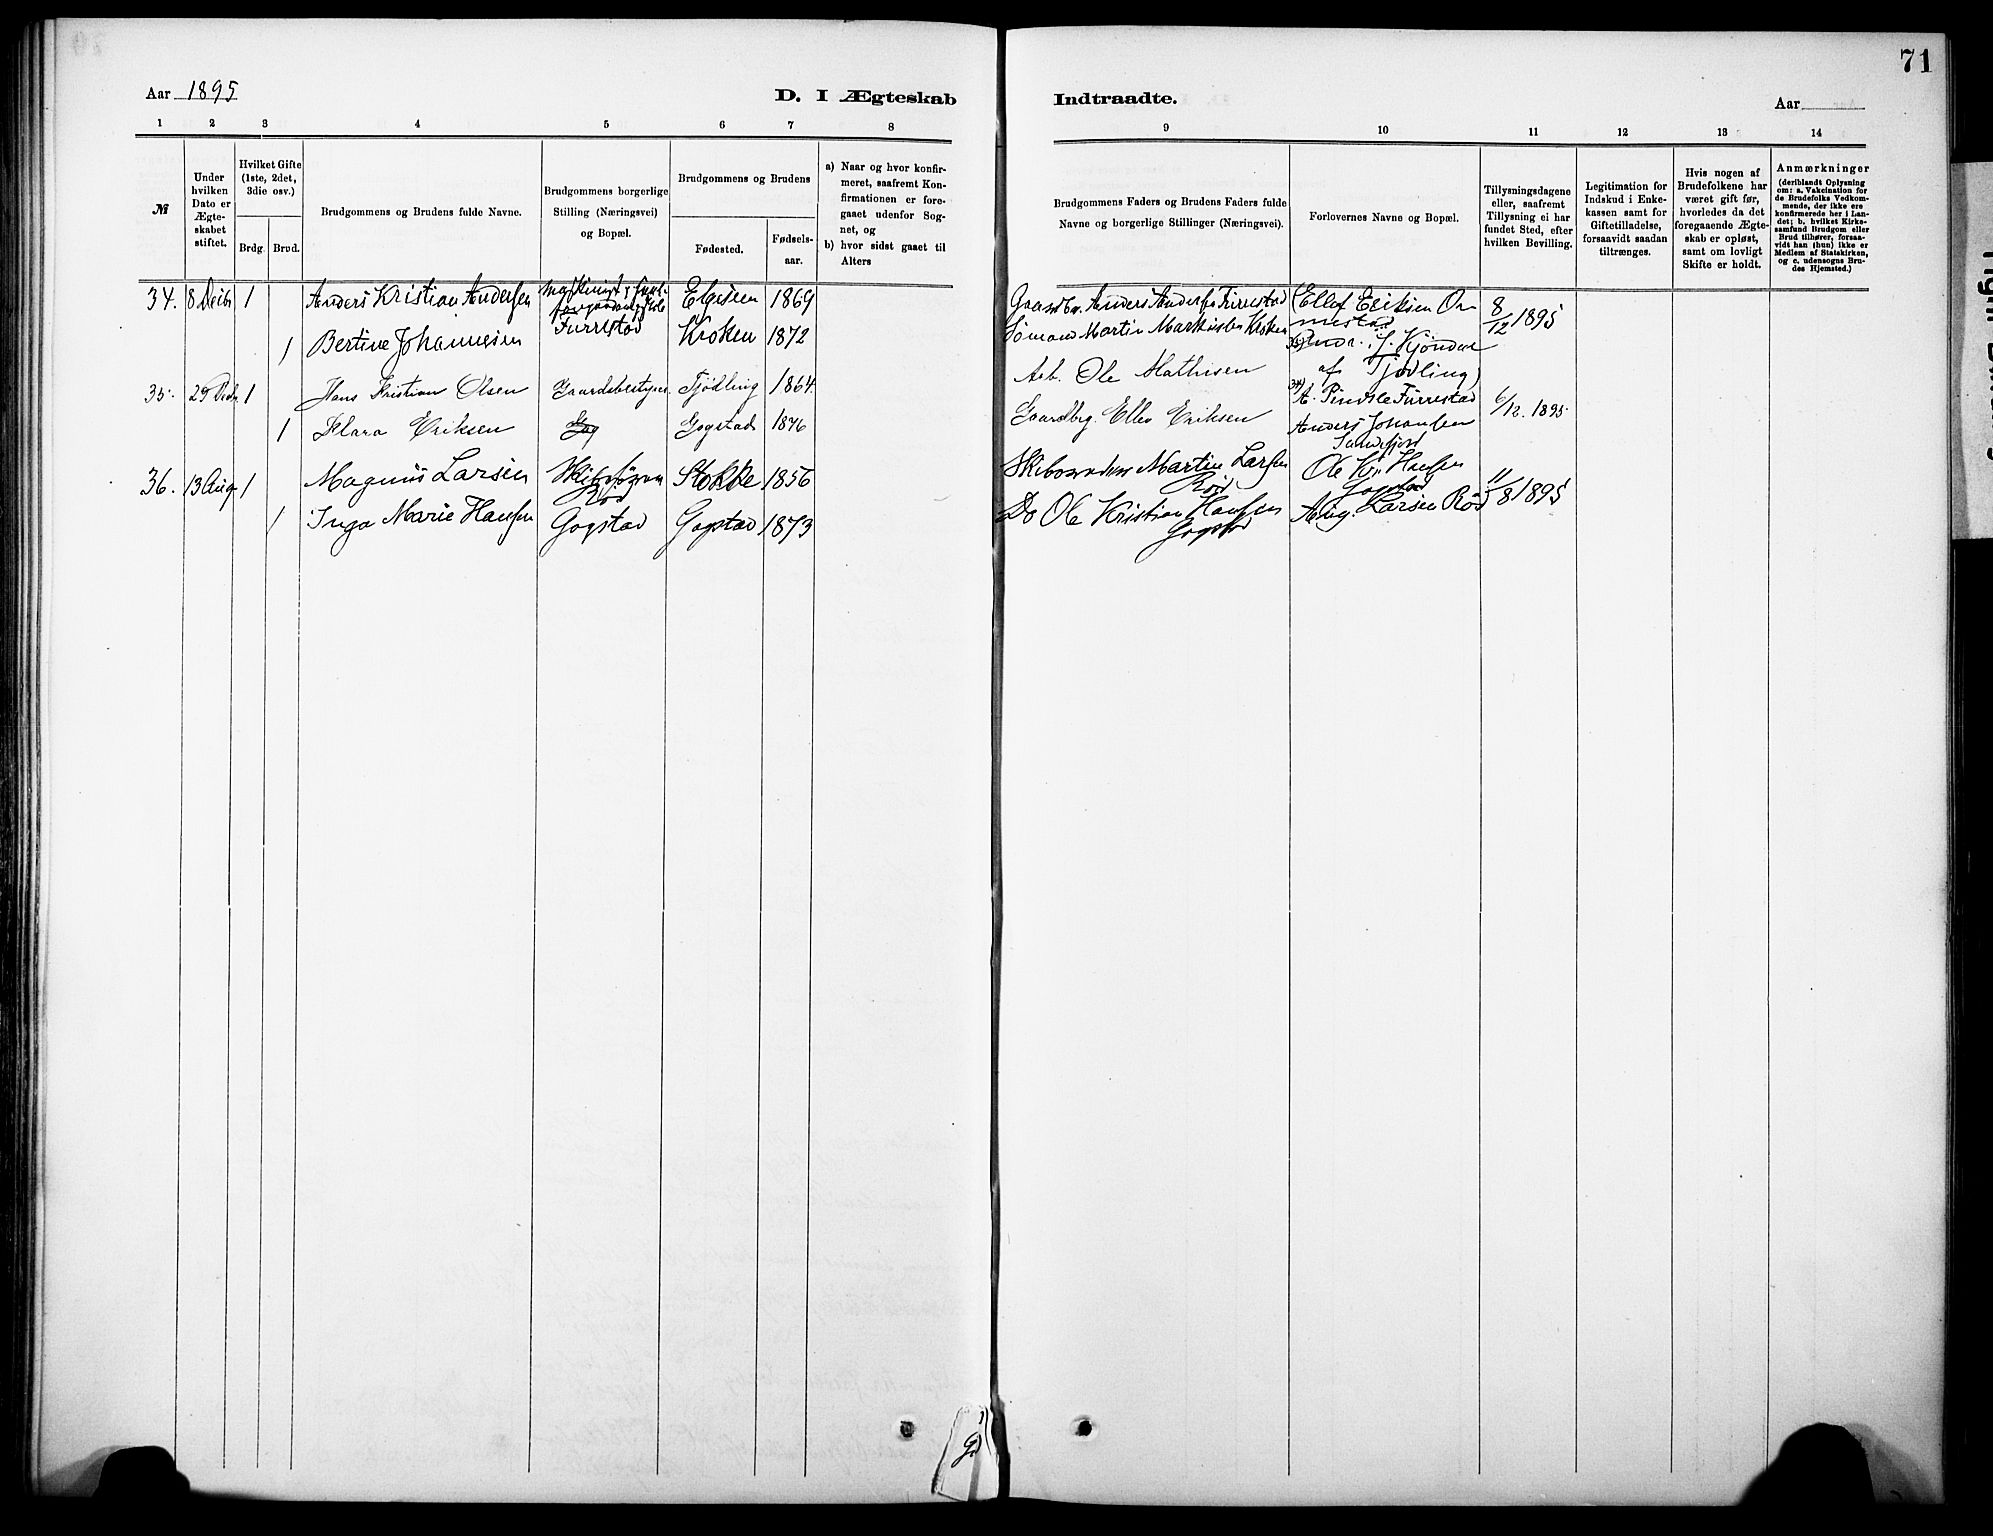 71
Aar 1895
D. I Ægteskab
Indtraadte.
Aar
1 2 3 4 5 6 7 8
9 10 11 12 13 14
№
Under hvilken Dato er Ægte-skabet stiftet.
Hvilket Gifte (1ste, 2det, 3die osv.)
Brdg. Brud.
Brudgommens og Brudens fulde Navne.
Brudgommens borgerlige Stilling (Næringsvei) og Bopæl.
Brudgommens og Brudens
Fødested.
Fødsels-aar.
a) Naar og hvor konfir-meret, saafremt Kon-firmationen er fore-gaaet udenfor Sog-net, og
b) hvor sidst gaaet til Alters
Brudgommens Faders og Brudens Faders fulde Navne og borgerlige Stillinger (Næringsvei).
Forlovernes Navne og Bopæl.
Tillysningsdagene eller, saafremt Tillysning ei har fundet Sted, efter hvilken Bevilling.
Legitimation for Indskud i Enke-kassen samt for Giftetilladelse, forsaavidt saadan tiltrænges.
Hvis nogen af Brudefolkene har været gift før, hvorledes da det foregaaende Ægte-skab er opløst, samt om lovligt Skifte er holdt.
Anmærkninger
(deriblandt Oplysning om: a. Vakcination for de Brudefolks Vedkom-mende, der ikke ere konfirmerede her i Lan-det; b. hvilket Kirke-samfund Brudgom eller Brud tilhører, forsaa-vidt han (hun) ikke er Medlem af Statskirken, og c. udensogns Bru-des Hjemsted.)
34. 8 Decbr 1 Anders Kristian Andersen Furrestad 1869
Gaardbr. Anders Andersen Furrestad Ellef Eriksen 8/12 1895
1 Bertine Johannesen Kroken 1872
Sømand Martin Kroken Kjøndal af Tjødling
35. 29 Decbr 1 Hans Kristian Olsen Gaardsbestyrer Tjødling 1864
Arb. Ole Mathisen A. Pindsle Furrestad 6/12. 1895
1 Klara Eriksen Gogstad 1876
Gaardbrg. Ellev Eriksen Anders Johansen Sandefjord
36. 13 Aug 1 Magnus Larsen Rød Stokke 1856
Martin Larsen Rød Ole Kr. Hansen Gogstad 11/8 1895
1 Inga Marie Hansen Gogstad Gogstad 1873
Do Ole Kristian Hansen Gogstad Aug. Larsen Rød